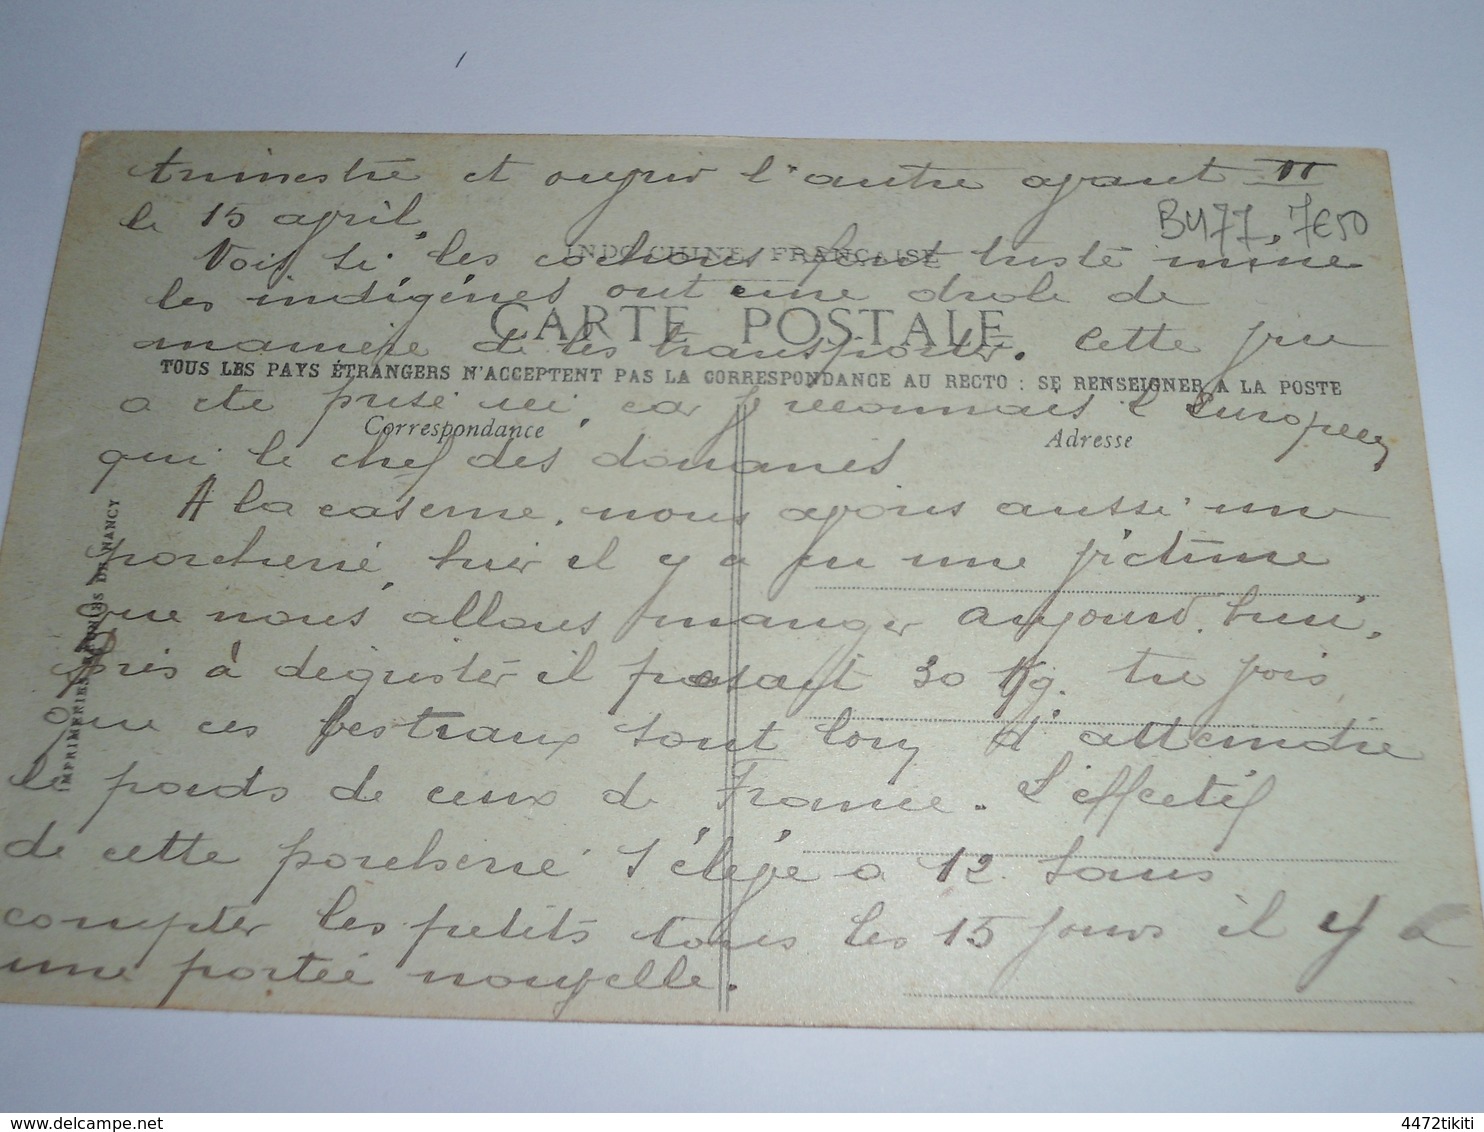 trimestre et ouvrir l'autre avant
le 15 avril.
BU77 7€50
INDO-CHINE FRANÇAISE
Vois si les cochons font triste mine
les indigènes ont une drole de
CARTE POSTALE
manière de les transporter. Cette vue
TOUS LES PAYS ÉTRANGERS N'ACCEPTENT PAS LA CORRESPONDANCE AU RECTO : SE RENSEIGNER A LA POSTE
a été prise ici, car je reconnais l'Européen
Correspondance
Adresse
qui le chef des douanes
A la caserne, nous avons aussi une
porcherie, hier il y a eu une victime
que nous allons manger aujourd'hui,
près à déguster il pesait 30 Kg. tu vois
que ces bestiaux sont loin d'atteindre
le poids de ceux de France. L'effectif
de cette porcherie s'élève a 12 sans
compter les petits tous les 15 jours il y a
une portée nouvelle.
IMPRIMERIES RÉUNIES DE NANCY
4472tikiti